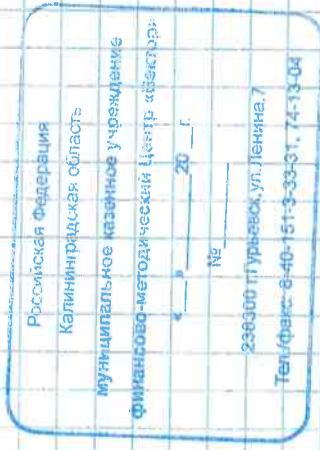 Российская Федерация
Калининградская область
муниципальное казенное учреждение
финансово-методический Центр «Вектор»
«___»________20__г.
№________
238300 г.Гурьевск,ул.Ленина,7
Тел./факс: 8-40-151-3-33-31, 74-13-04